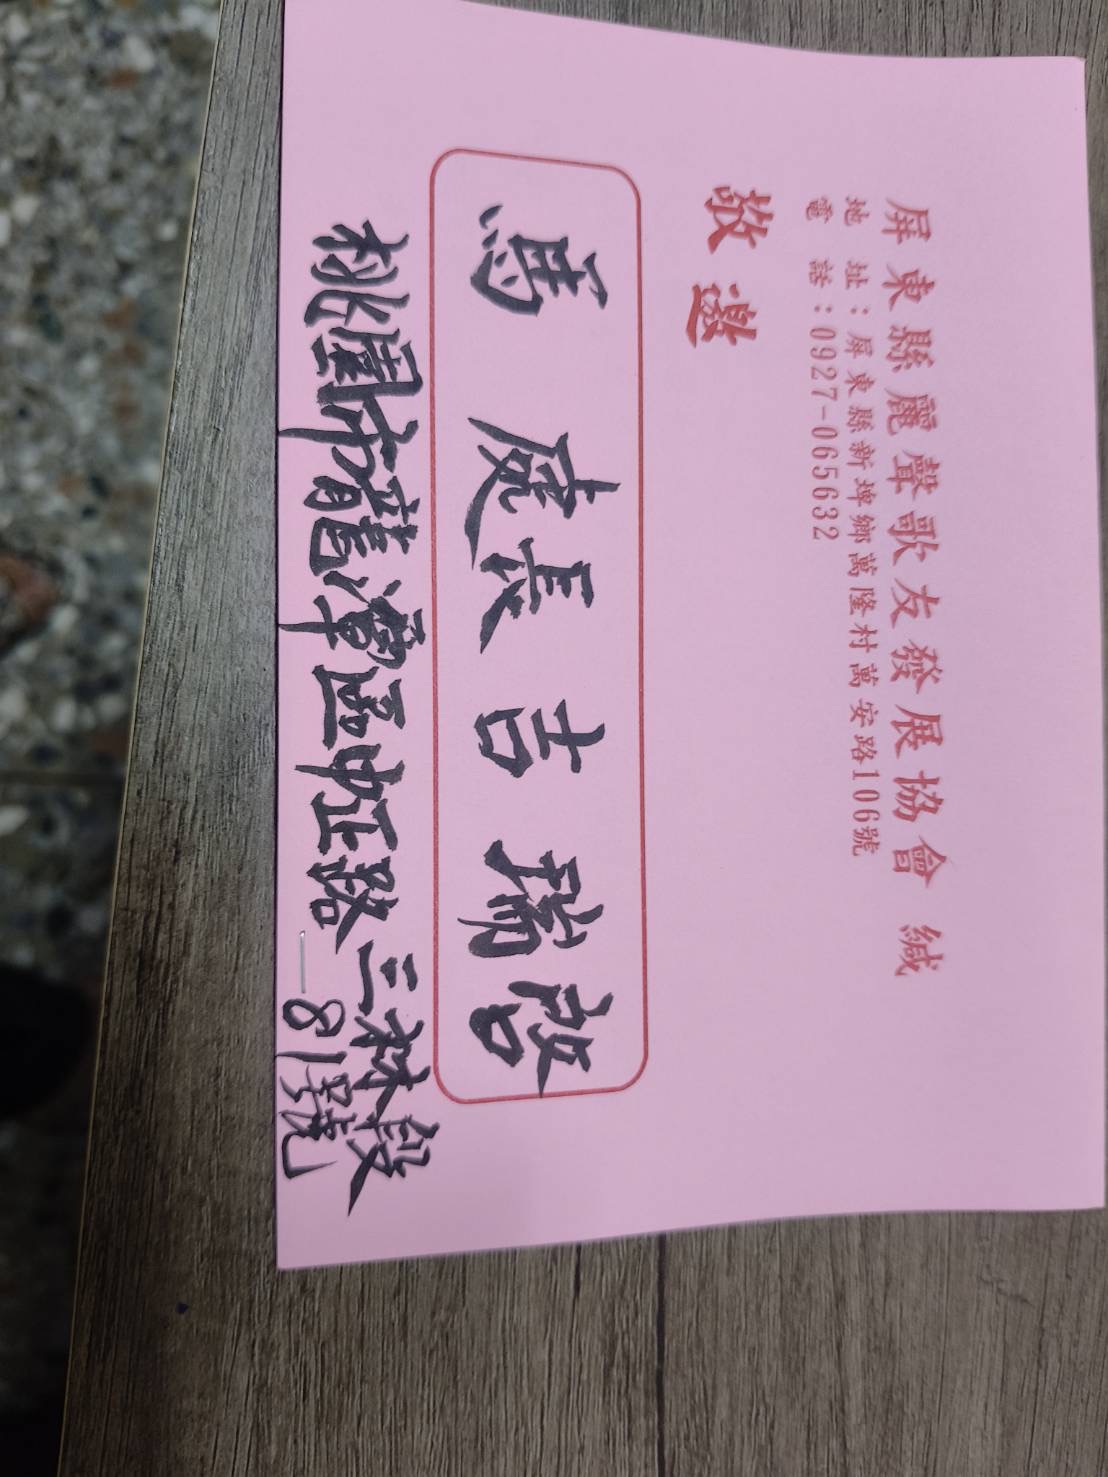 屏東縣麗聲歌友發展協會 緘
地 址：屏東縣新埤鄉萬隆村萬安路106號
電 話：0927-065632
敬邀
馬 處長 吉 瑞 啟
桃園市龍潭區中正路三林段
81號